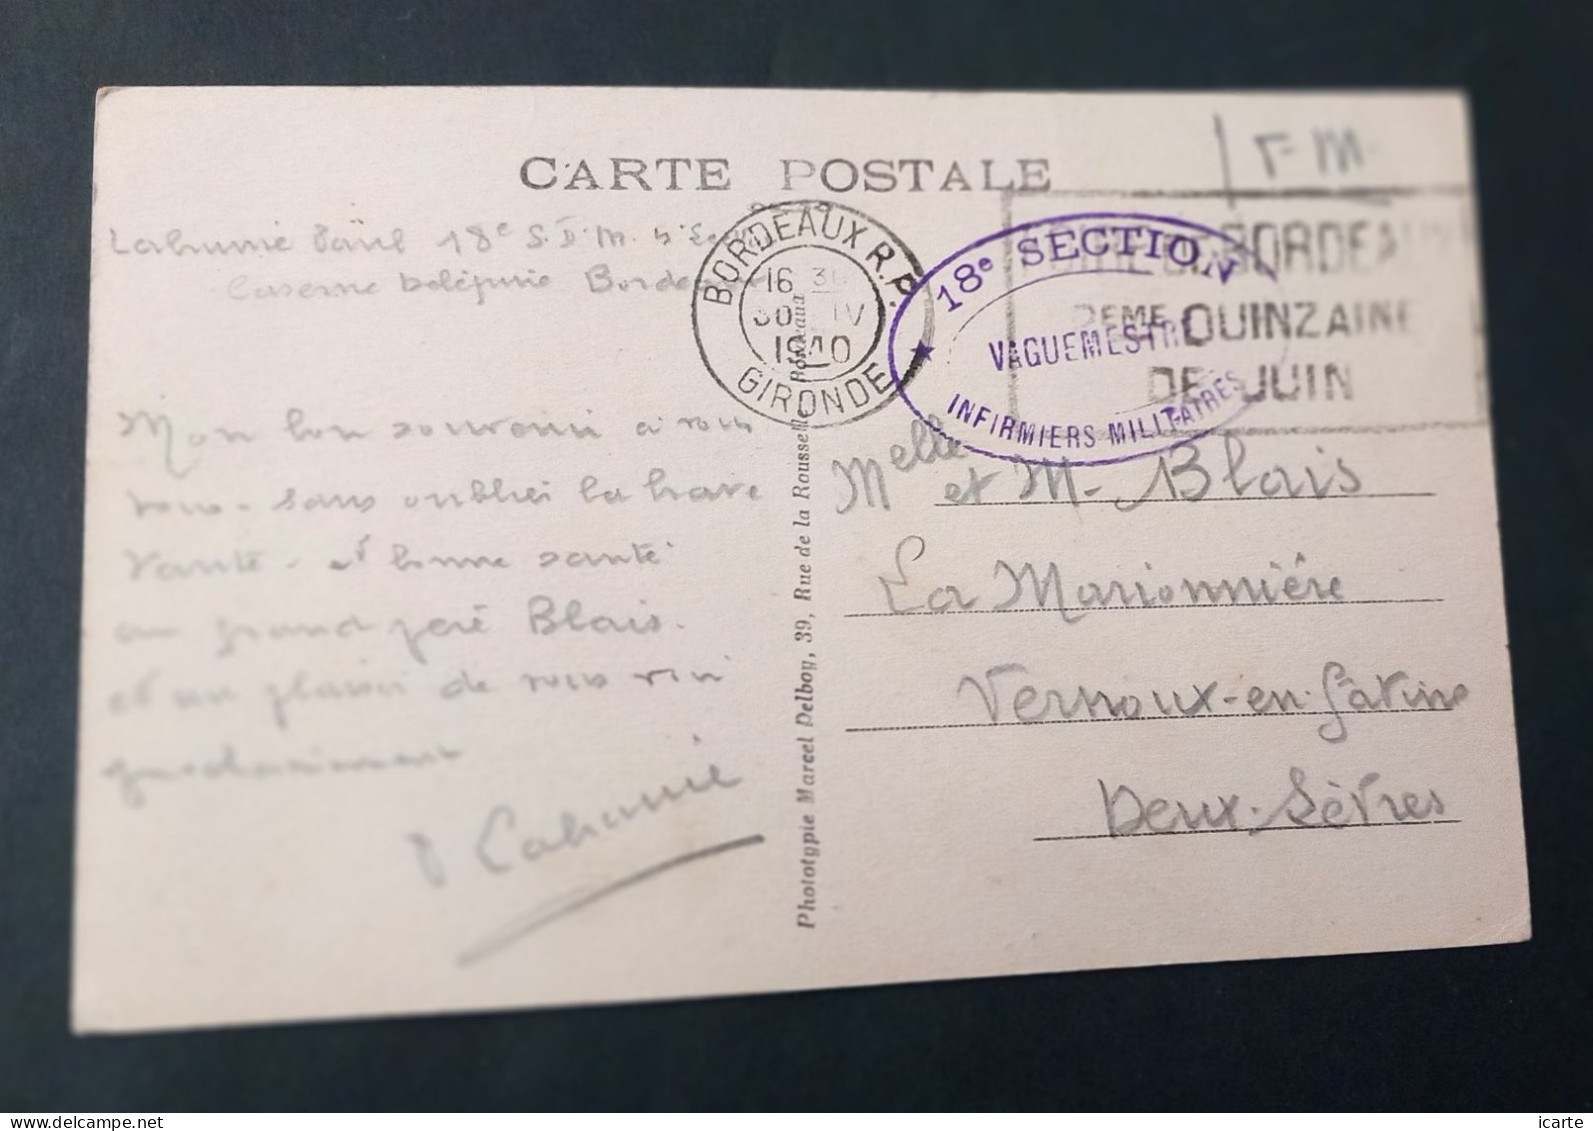 CARTE POSTALE
F M
18e S. M.
Caserne Bordeaux
BORDEAUX R.P.
16 30
30 IV
1940
GIRONDE
18e SECTION
VAGUEMESTRE
INFIRMIERS MILITAIRES
BORDEAUX
2EME QUINZAINE
DE JUIN
Mon bon souvenir à vous
vous - sans oublier la
et bonne santé
au grand père Blais.
et au plaisir de vous
prochainement
Lahumie
Bordeaux
Phototypie Marcel Delboy, 39, Rue de la Rousselle
Melle et M. Blais
La Marionnière
Vernoux-en-Gâtine
Deux-Sèvres
delcampe.net
icarte